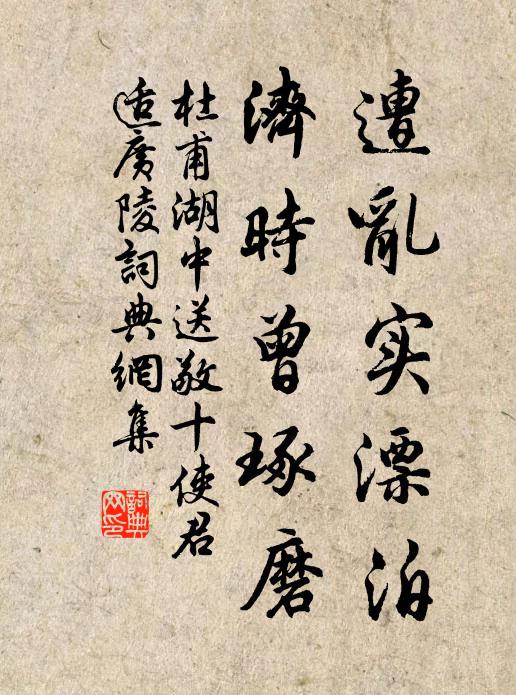 遭亂实漂泊
濟時曾琢磨
杜甫湖中送敬十使君
适廣陵詞典網集
詞典网印